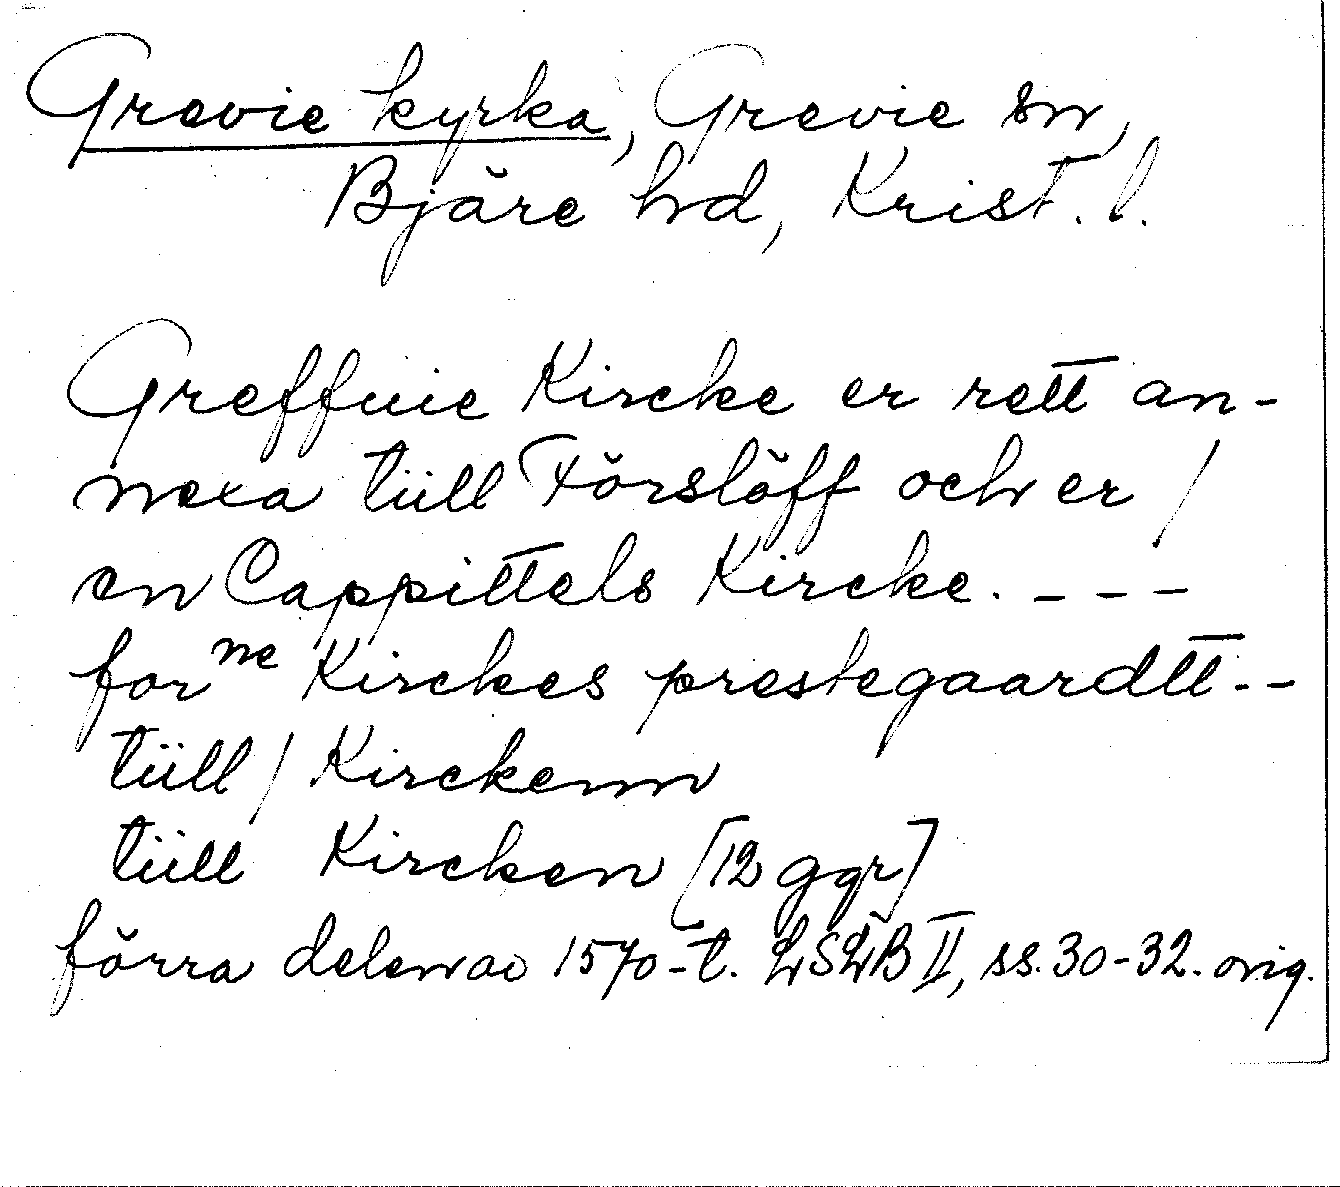 Grevie kyrka, Grevie sn,
Bjäre hd, Krist. l.
Greffuie Kircke er rett an-
nexa tüll Förslöff och er /
en Cappittels Kircke. - - -
for ne Kirckes prestegaardtt - -
tüll / Kirckenn
tüll Kircken [12 ggr]
förra delen av 1570-t. LSLB II, ss. 30-32. orig.